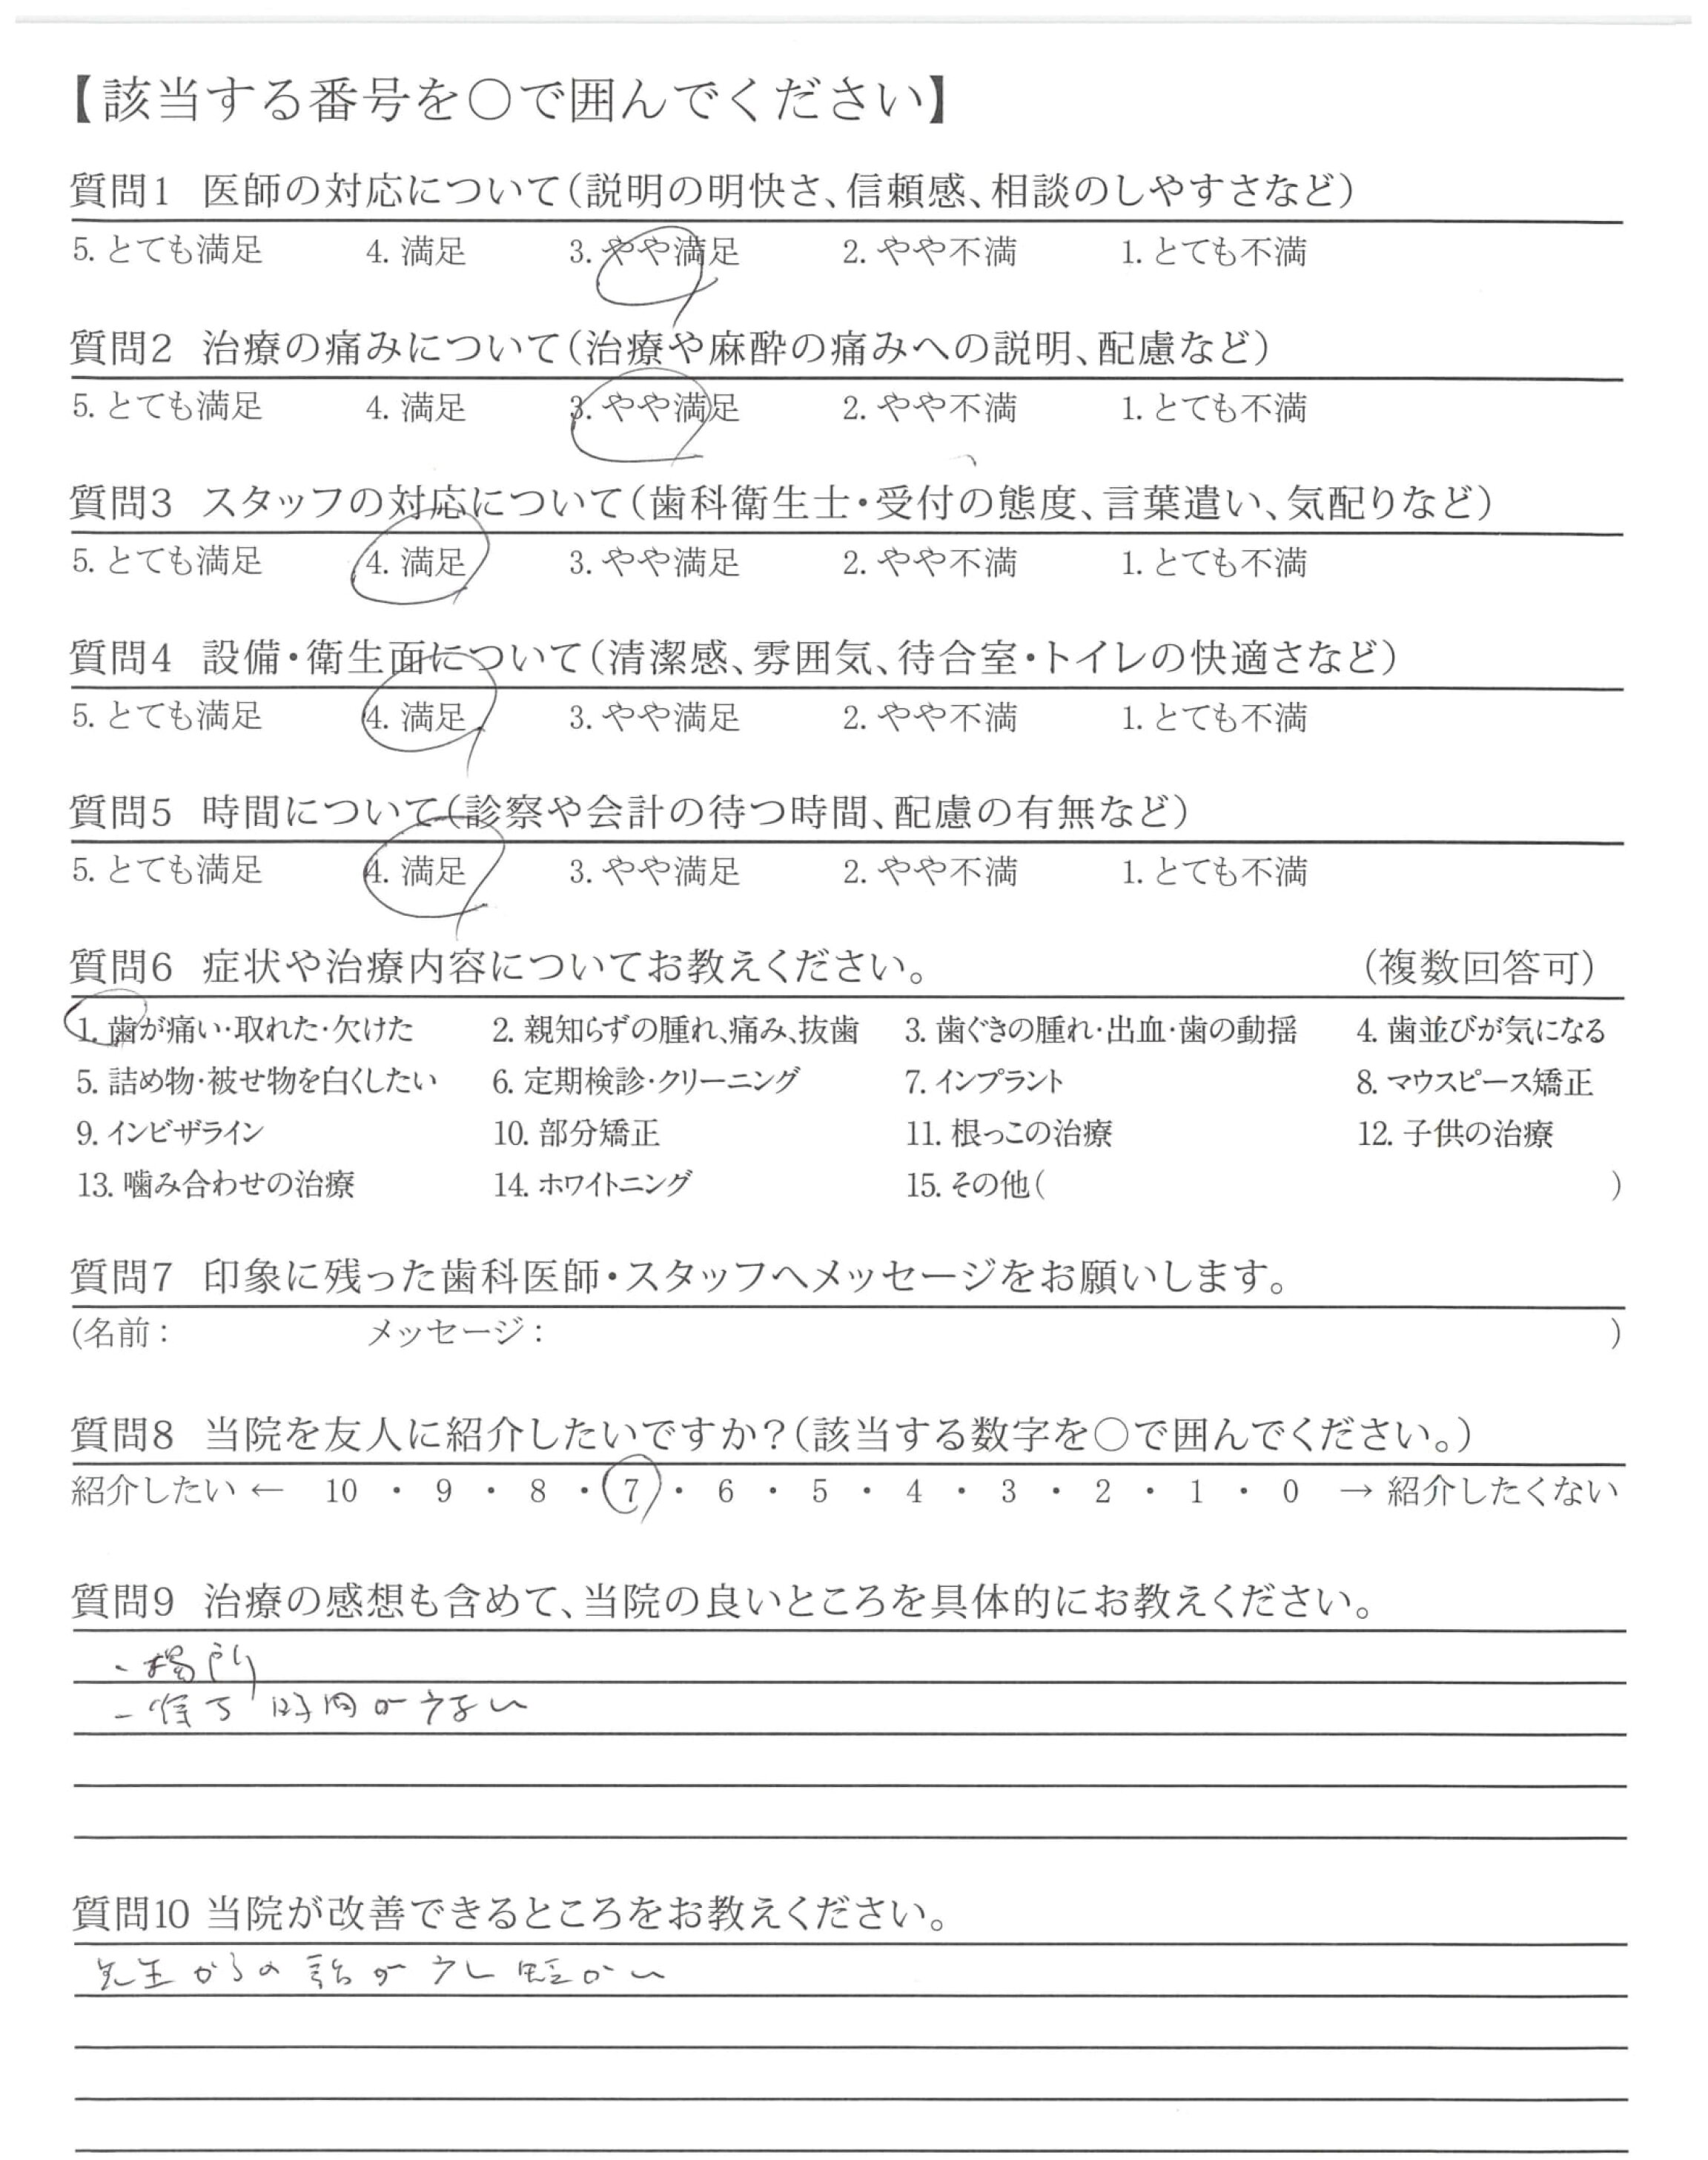 【該当する番号を○で囲んでください】
質問1 医師の対応について(説明の明快さ、信頼感、相談のしやすさなど)
5. とても満足 4. 満足 3. やや満足 2. やや不満 1. とても不満
質問2 治療の痛みについて(治療や麻酔の痛みへの説明、配慮など)
5. とても満足 4. 満足 3. やや満足 2. やや不満 1. とても不満
質問3 スタッフの対応について(歯科衛生士・受付の態度、言葉遣い、気配りなど)
5. とても満足 4. 満足 3. やや満足 2. やや不満 1. とても不満
質問4 設備・衛生面について(清潔感、雰囲気、待合室・トイレの快適さなど)
5. とても満足 4. 満足 3. やや満足 2. やや不満 1. とても不満
質問5 時間について(診察や会計の待つ時間、配慮の有無など)
5. とても満足 4. 満足 3. やや満足 2. やや不満 1. とても不満
質問6 症状や治療内容についてお教えください。 (複数回答可)
1. 歯が痛い・取れた・欠けた 2. 親知らずの腫れ、痛み、抜歯 3. 歯ぐきの腫れ・出血・歯の動揺 4. 歯並びが気になる
5. 詰め物・被せ物を白くしたい 6. 定期検診・クリーニング 7. インプラント 8. マウスピース矯正
9. インビザライン 10. 部分矯正 11. 根っこの治療 12. 子供の治療
13. 噛み合わせの治療 14. ホワイトニング 15. その他( )
質問7 印象に残った歯科医師・スタッフへメッセージをお願いします。
(名前: メッセージ: )
質問8 当院を友人に紹介したいですか?(該当する数字を○で囲んでください。)
紹介したい ← 10 ・ 9 ・ 8 ・ 7 ・ 6 ・ 5 ・ 4 ・ 3 ・ 2 ・ 1 ・ 0 → 紹介したくない
質問9 治療の感想も含めて、当院の良いところを具体的にお教えください。
・場所
・待ち時間が少ない
質問10 当院が改善できるところをお教えください。
先生からの話が少し短かい